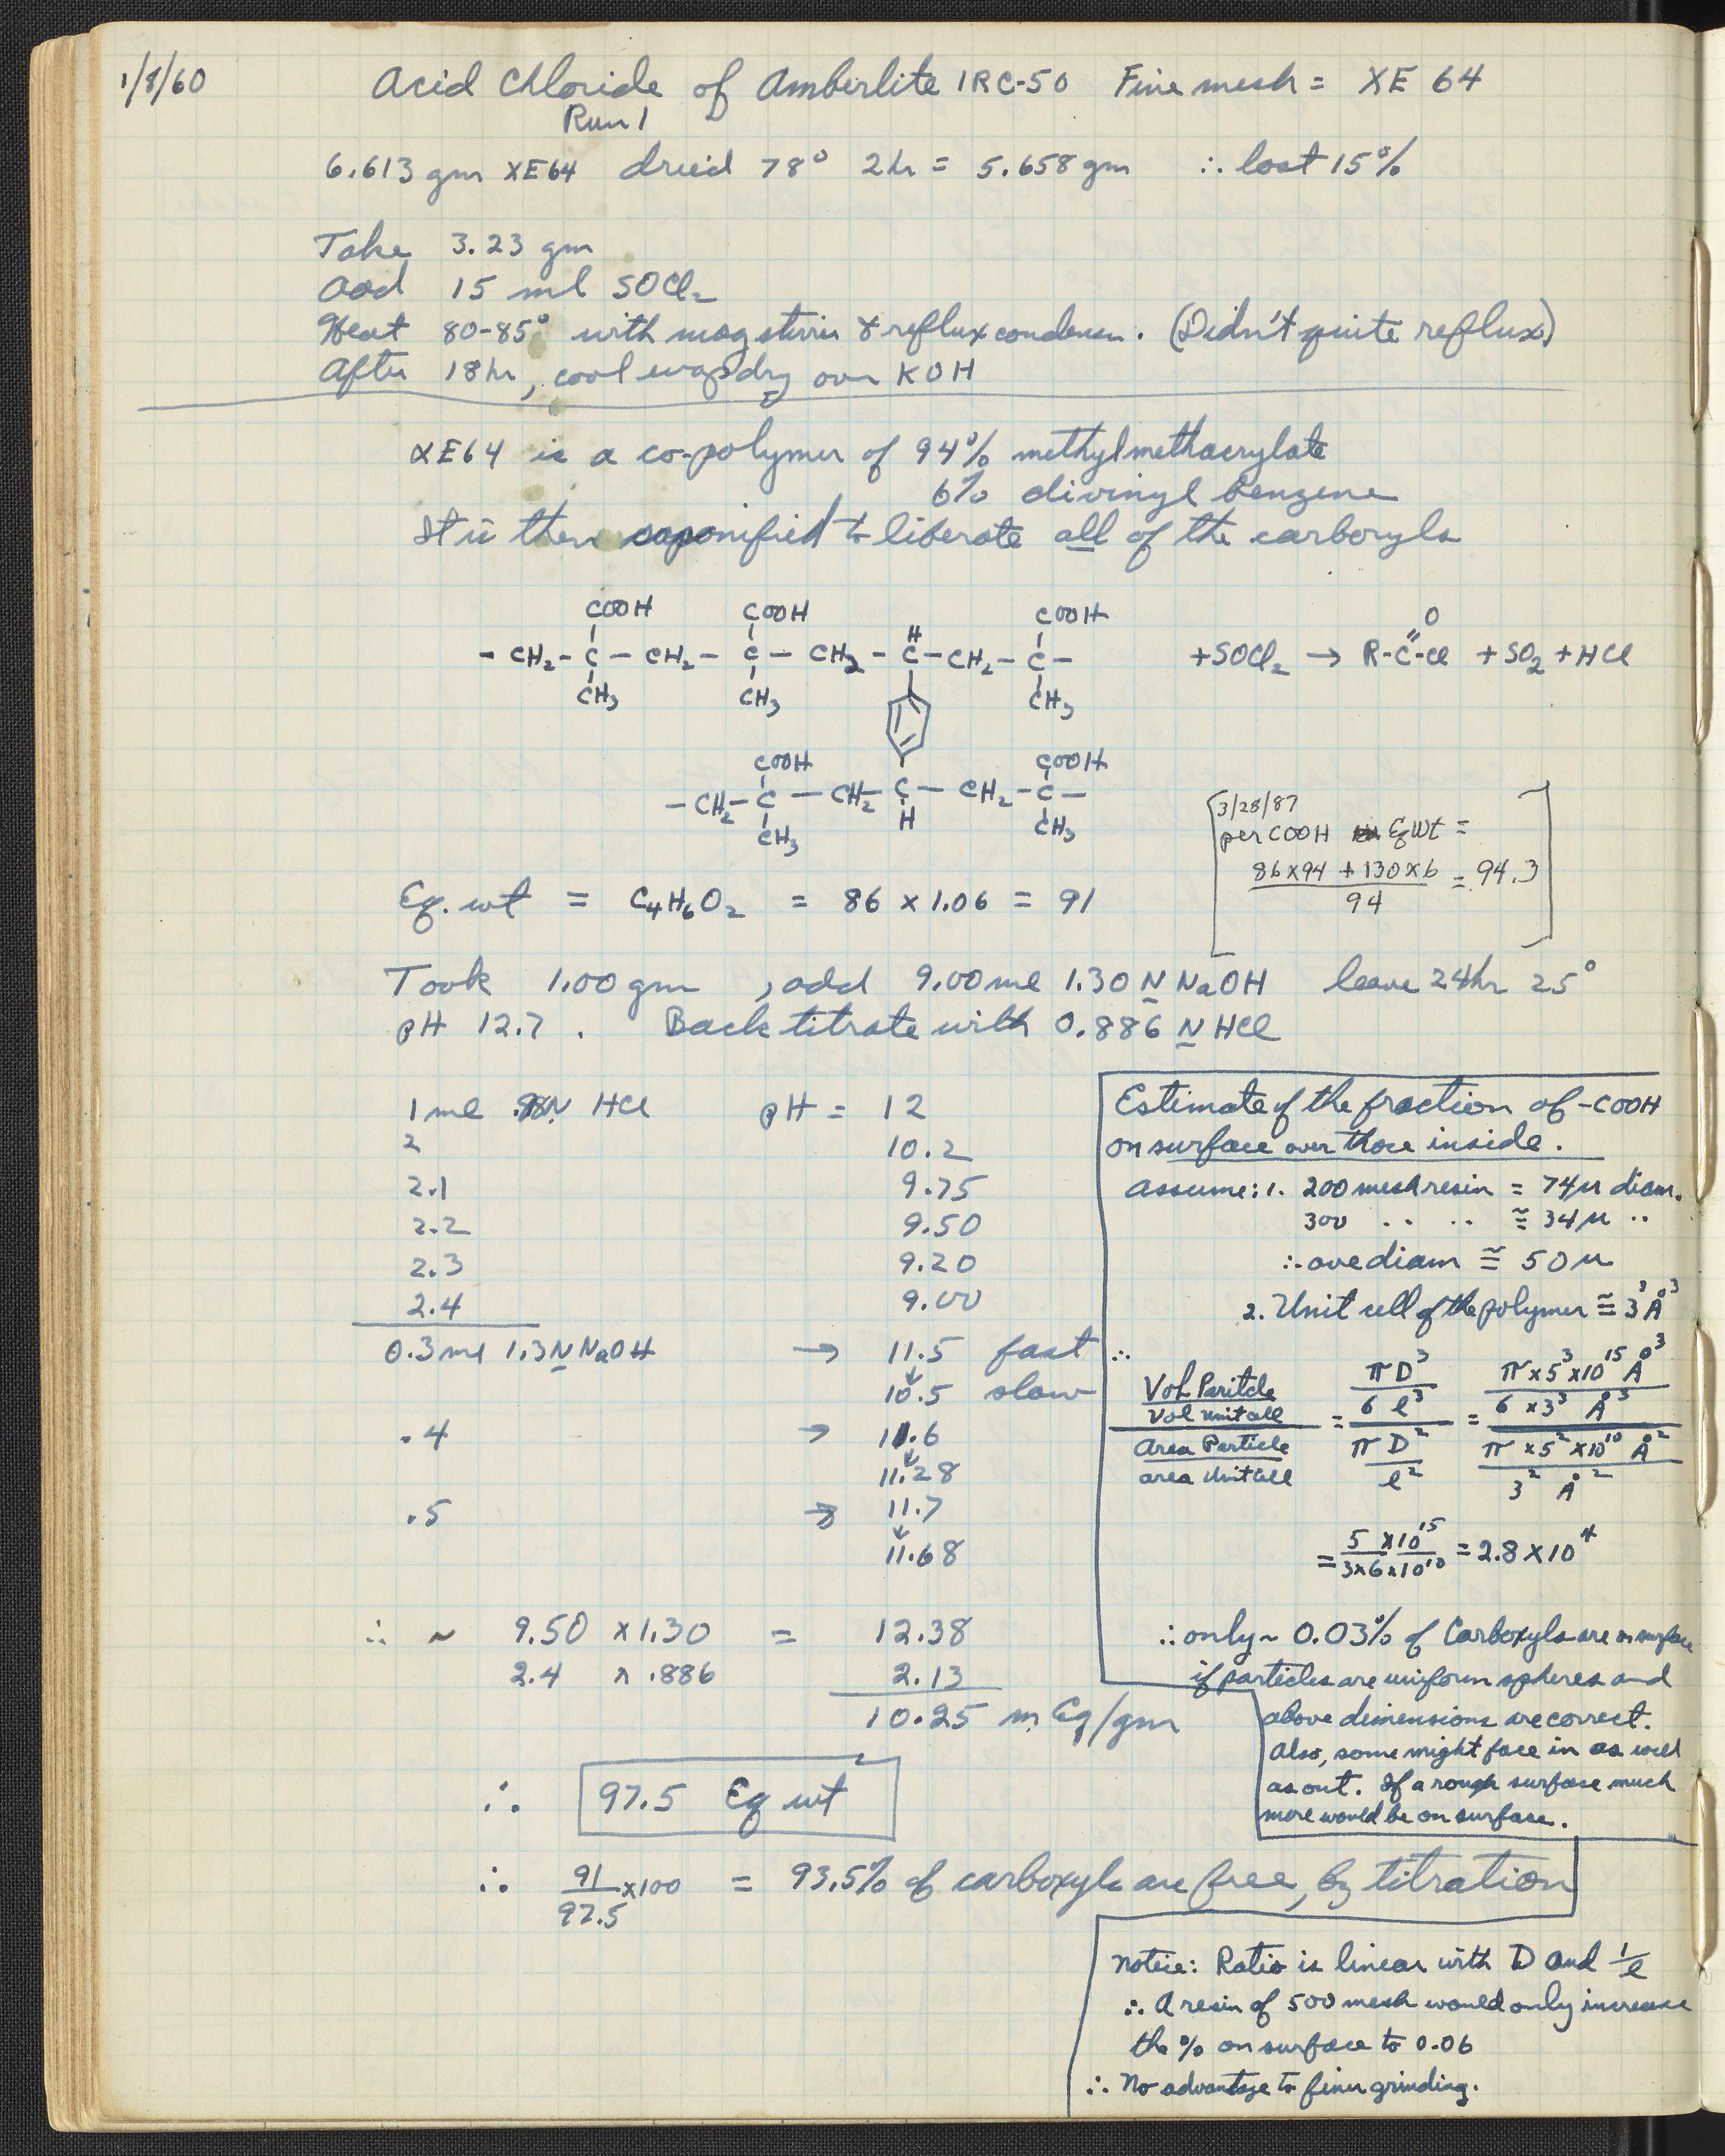 1/8/60
Acid Chloride of Amberlite IRC-50 Fine mesh = XE 64
Run 1
6.613 gm XE64 dried 78° 2hr = 5.658 gm ∴ lost 15%
Take 3.23 gm
Add 15 ml SOCl₂
Heat 80-85° with mag stirrer & reflux condenser. (Didn't quite reflux)
After 18hr, cool evap dry over KOH
XE64 is a co-polymer of 94% methylmethacrylate
6% divinyl benzene
It is then saponified to liberate all of the carboxyls
COOH COOH COOH
- CH₂ - C - CH₂ - C - CH₂ - C - CH₂ - C - +SOCl₂ → R-C-Cl + SO₂ + HCl
H O
CH₃ CH₃ CH₃
COOH COOH
- CH₂ - C - CH₂ - C - CH₂ - C -
CH₃ H CH₃
[3/28/87
per COOH Eq Wt =
86x94 + 130x6 / 94 = 94.3]
Eq. wt = C₄H₆O₂ = 86 x 1.06 = 91
Took 1.00 gm , add 9.00 ml 1.30 N NaOH leave 24hr 25°
pH 12.7 . Back titrate with 0.886 N HCl
1 ml HCl pH = 12
2 10.2
2.1 9.75
2.2 9.50
2.3 9.20
2.4 9.00
0.3 ml 1.3 N NaOH → 11.5 fast
↓
10.5 slow
.4 → 11.6
↓
11.28
.5 → 11.7
↓
11.68
∴ ~ 9.50 x 1.30 = 12.38
2.4 x .886 2.13
10.25 mEq/gm
∴ 97.5 Eq wt
∴ 91/97.5 x100 = 93.5% of carboxyls are free, by titration
Estimate of the fraction of -COOH
on surface over those inside.
Assume: 1. 200 mesh resin = 74µ diam.
300 .. .. ≅ 34µ ..
∴ ave diam ≅ 50µ
2. Unit cell of the polymer ≅ 3³ Å³
∴
Vol Paritcle / Vol unit cell = πD³ / 6 l³ = π x 5³ x 10¹⁵ Å³ / 6 x 3³ Å³
Area Particle / area Unit cell πD² / l² π x 5² x 10¹⁰ Å² / 3² Å²
= 5 x 10¹⁵ / 3x6x10¹⁰ = 2.8 x 10⁴
∴ only ~ 0.03% of Carboxyls are on surface
if particles are uniform spheres and
above dimensions are correct.
Also, some might face in as well
as out. If a rough surface much
more would be on surface.
Notice: Ratio is linear with D and 1/l
∴ A resin of 500 mesh would only increase
the % on surface to 0.06
∴ No advantage to finer grinding.